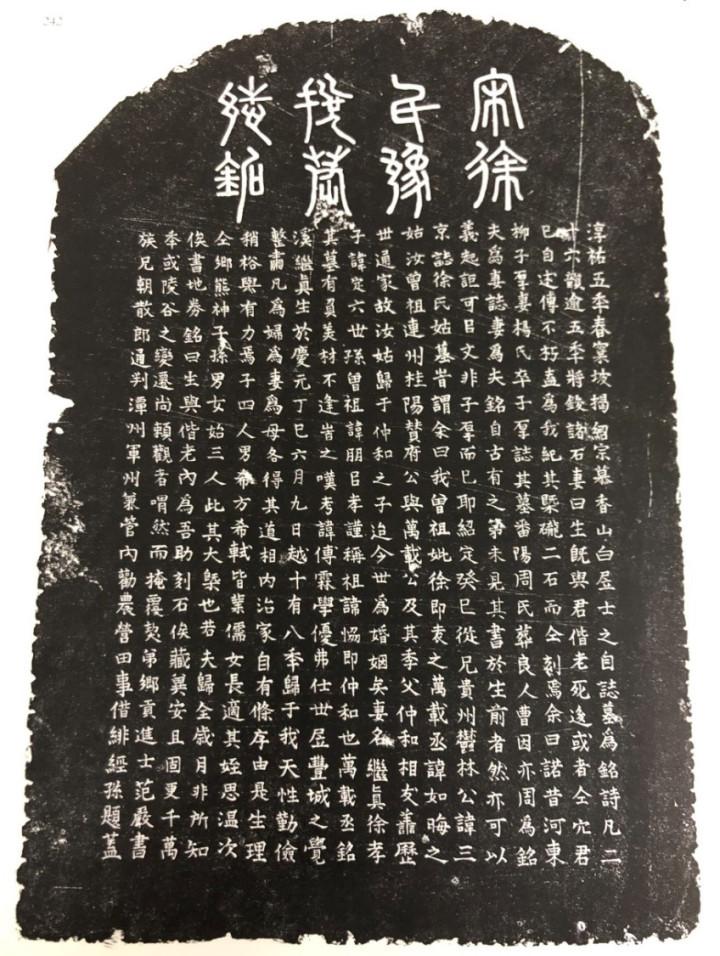 242
宋徐
氏豫
銘
淳祐五季春窠坡揭紹宗慕香山白居士之自誌墓為銘詩凡二
十六觀逾五季將鋟諸石真曰生旣與君偕老死逡或者仝穴君
已自定傳不朽盍為我紀其槩礲二石而仝刻焉余曰諾昔河東
柳子厚妻楊氏卒子厚誌其墓番陽周氏葬良人曹因亦周為銘
夫為妻誌妻為夫銘自古有之第未見其書於生前者然亦可以
義起詎可㠯文非子厚而已耶紹定癸巳從兄貴州欝林公諱三
京誌徐氏姑墓旹謂余曰我曾祖妣徐即袁之萬載丞諱如晦之
姑汝曾祖連州桂陽贊府公與萬載公及其季父仲和相友善歷
世通家故汝姑歸于仲和之子迨今世為婚姻矣妻名繼真徐孝
子諱定六世孫曾祖諱朋㠯孝謹稱祖諱協即仲和也萬載丞銘
其墓有負美材不逢旹之嘆考諱傳霖學優弗仕世居豐城之覺
溪繼真生於慶元丁巳六月九日越十有八季歸于我天性勤儉
整肅凡為婦為妻為母各得其道相內治家自有條序由是生理
稍裕與有力焉子四人男希方希軾皆業儒女長適其姪思温次
仝鄉熊神子孫男女始三人此其大槩也若夫歸全歲月非所知
俟書地券銘曰生與偕老內為吾助刻石俟藏異安且固更千萬
季或陵谷之變遷尚頼觀者喟然而掩覆焉弟鄉貢進士范嚴書
族兄朝散郎通判潭州軍州兼管內勸農營田事借緋經孫題蓋